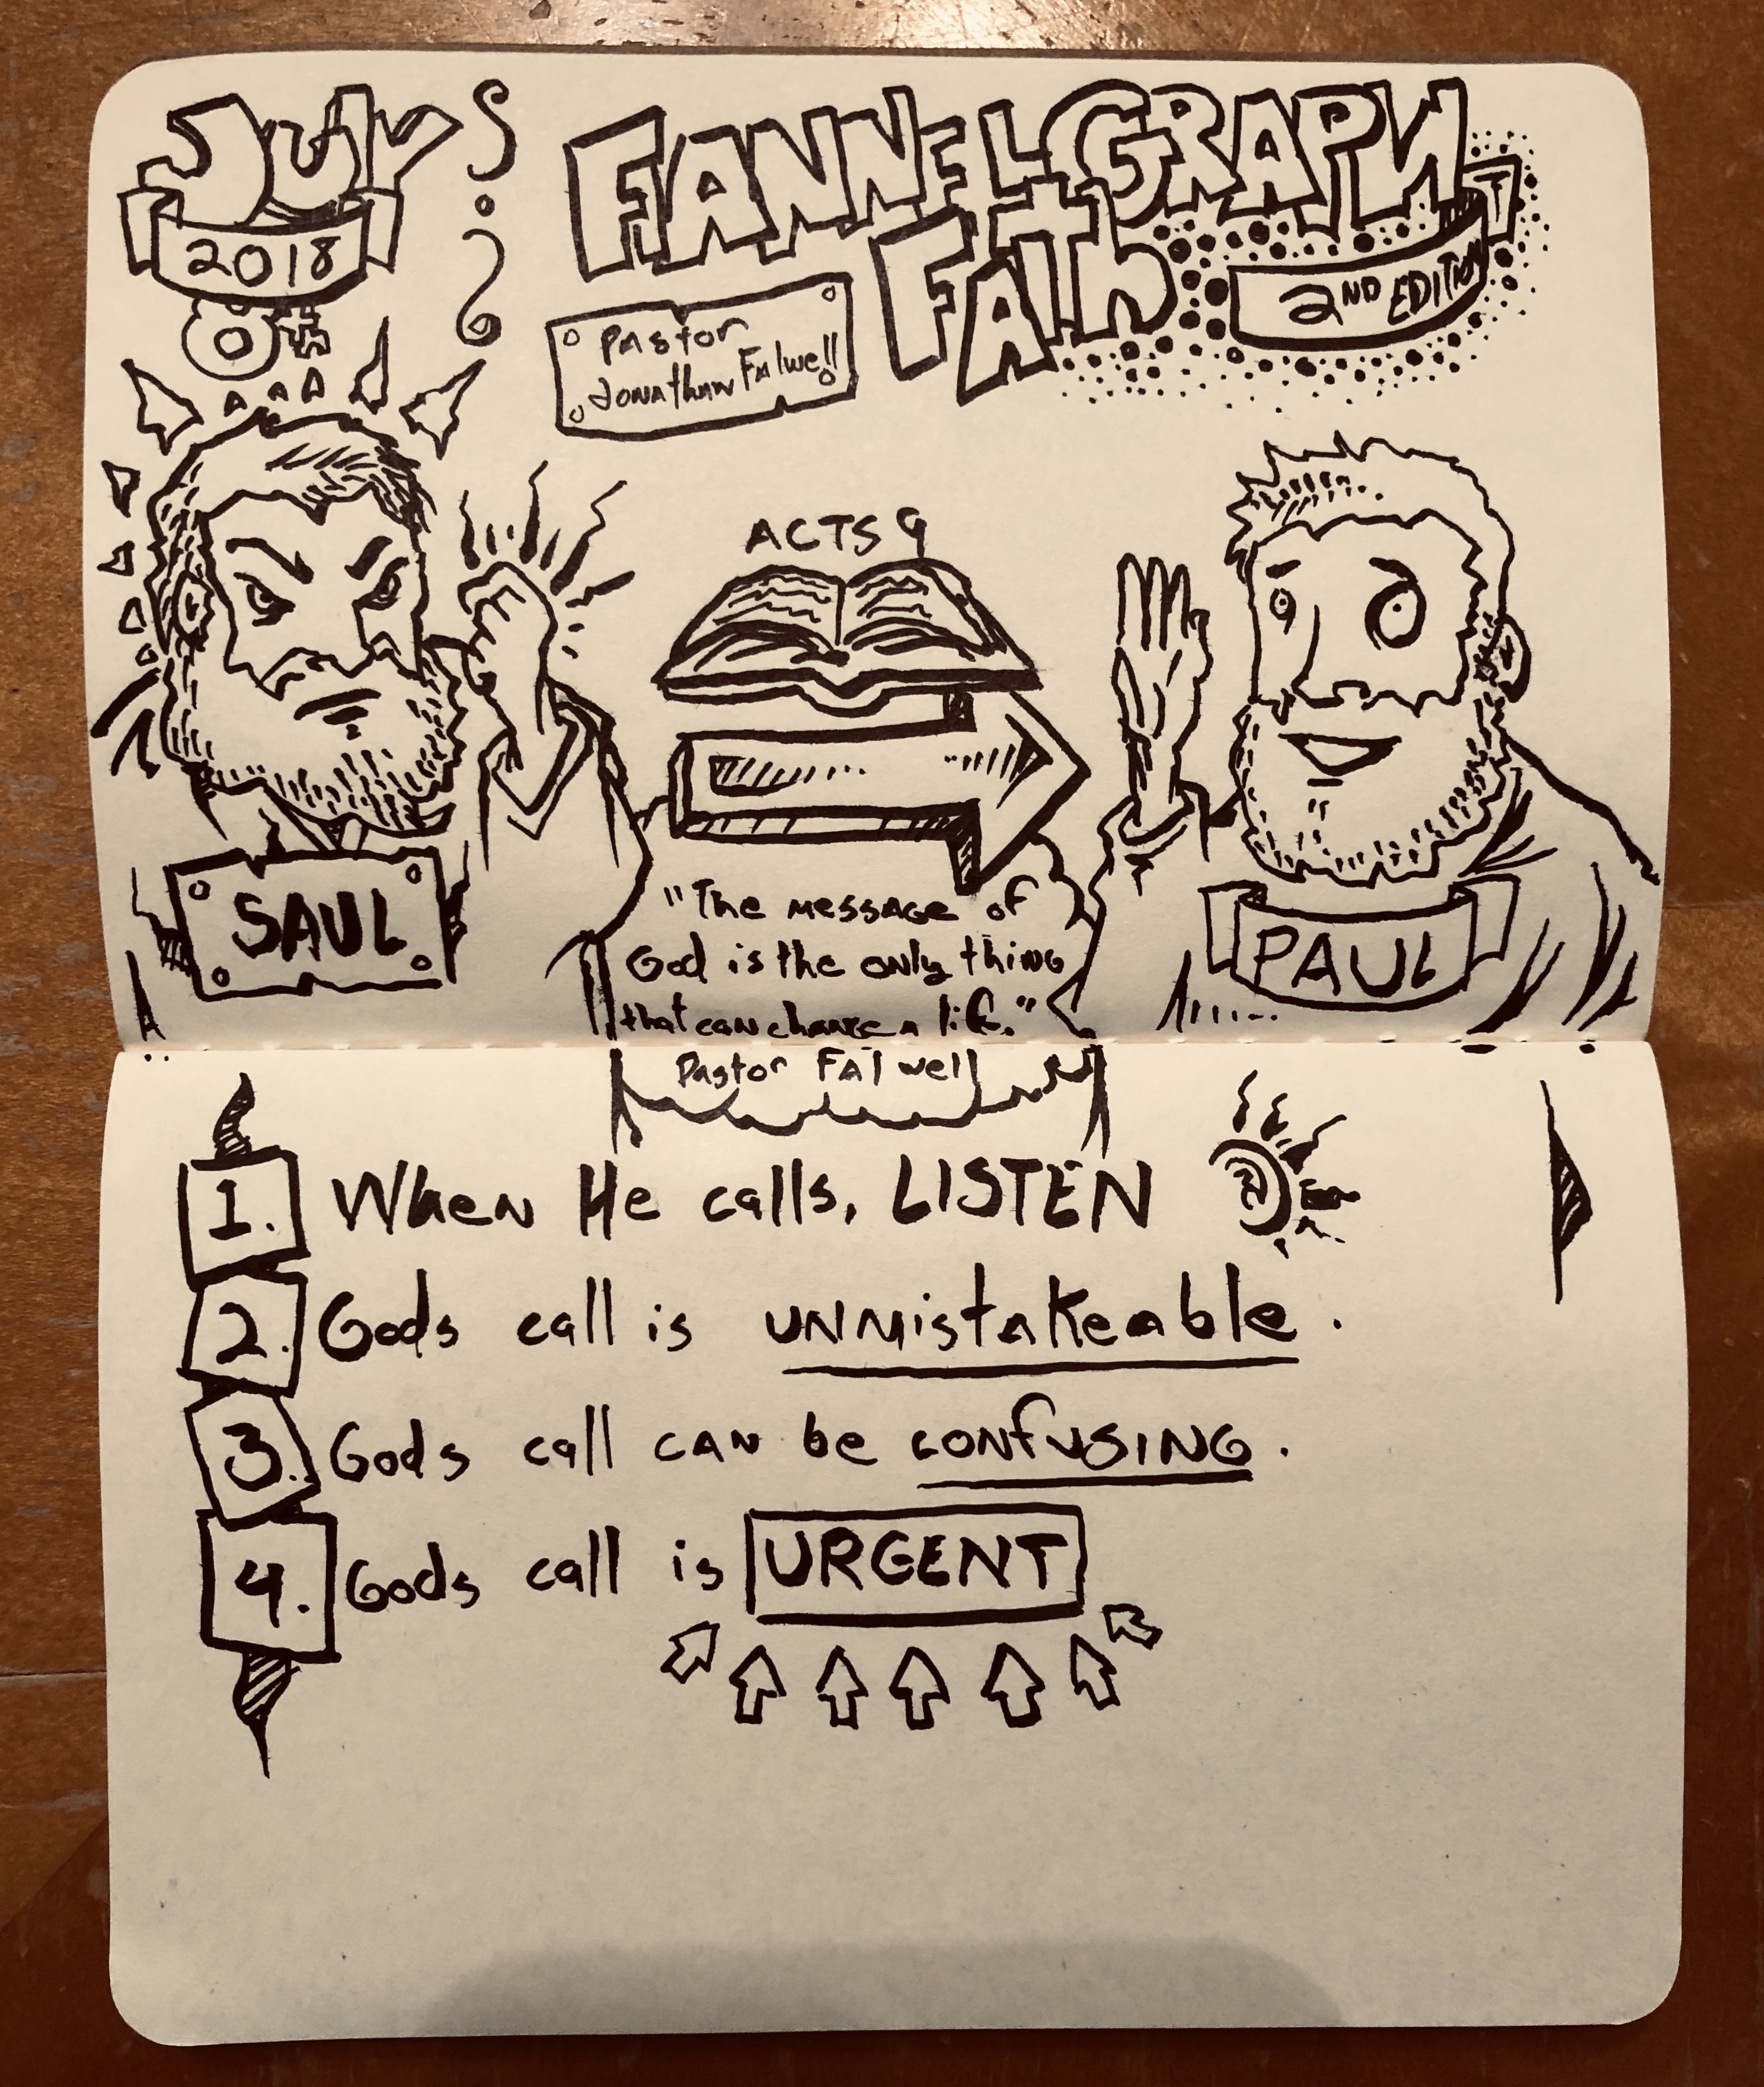 JULY
2018
8th
FANNELGRAPH
FAITh
2ND EDITION
Pastor
Jonathan Falwell
ACTS 9
SAUL
PAUL
"The message of
God is the only thing
that can change a life."
Pastor Falwell
1. When He calls, LISTEN
2. Gods call is unmistakeable.
3. Gods call can be confusing.
4. Gods call is URGENT